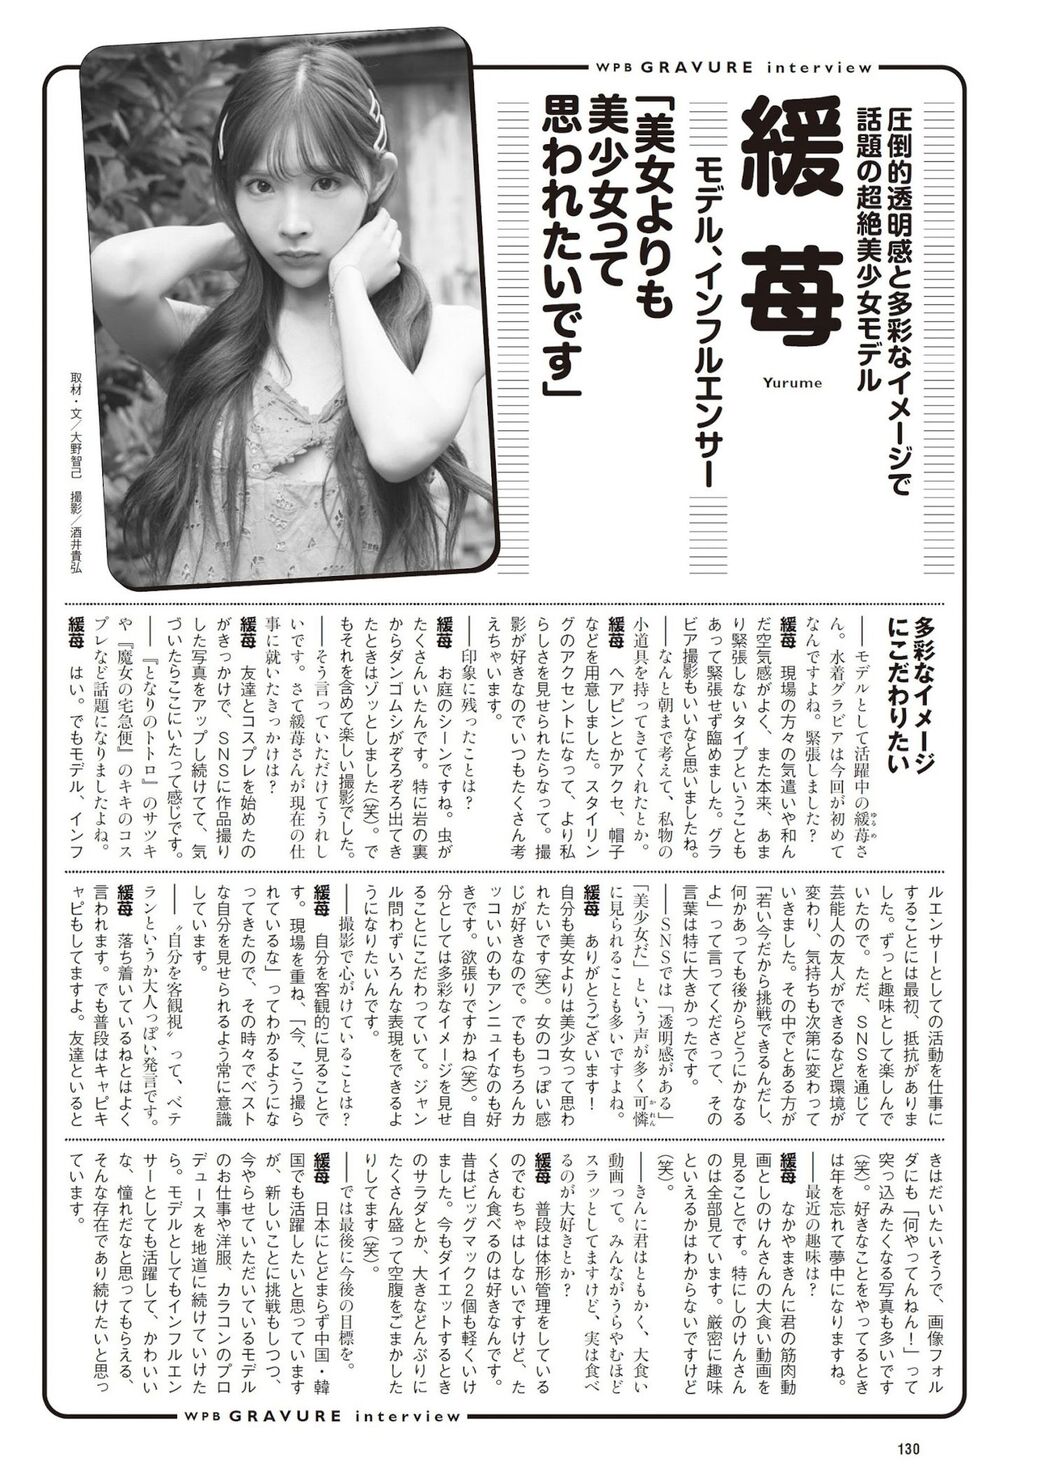 WPB GRAVURE interview
圧倒的透明感と多彩なイメージで
話題の超絶美少女モデル
緩苺
Yurume
モデル、インフルエンサー
「美女よりも
美少女って
思われたいです」
取材・文／大野智己 撮影／酒井貴弘
多彩なイメージ
にこだわりたい
――モデルとして活躍中の緩苺さ
ゆるめ
ん。水着グラビアは今回が初めて
なんですよね。緊張しました？
緩苺 現場の方々の気遣いや和ん
だ空気感がよく、また本来、あま
り緊張しないタイプということも
あって緊張せず臨めました。グラ
ビア撮影もいいなと思いましたね。
――なんと朝まで考えて、私物の
小道具を持ってきてくれたとか。
緩苺 ヘアピンとかアクセ、帽子
などを用意しました。スタイリン
グのアクセントになって、より私
らしさを見せられたらなって。撮
影が好きなのでいつもたくさん考
えちゃいます。
――印象に残ったことは？
緩苺 お庭のシーンですね。虫が
たくさんいたんです。特に岩の裏
からダンゴムシがぞろぞろ出てき
たときはゾッとしました（笑）。で
もそれを含めて楽しい撮影でした。
――そう言っていただけてうれし
いです。さて緩苺さんが現在の仕
事に就いたきっかけは？
緩苺 友達とコスプレを始めたの
がきっかけで、SNSに作品撮り
した写真をアップし続けてて、気
づいたらここにいたって感じです。
――『となりのトトロ』のサツキ
や『魔女の宅急便』のキキのコス
プレなど話題になりましたよね。
緩苺 はい。でもモデル、インフ
ルエンサーとしての活動を仕事に
することには最初、抵抗がありま
した。ずっと趣味として楽しんで
いたので。ただ、SNSを通じて
芸能人の友人ができるなど環境が
変わり、気持ちも次第に変わって
いきました。その中でとある方が
「若い今だから挑戦できるんだし、
何かあっても後からどうにかなる
よ」って言ってくださって、その
言葉は特に大きかったです。
――SNSでは「透明感がある」
「美少女だ」という声が多く可憐
かれん
に見られることも多いですよね。
緩苺 ありがとうございます！
自分も美女よりは美少女って思わ
れたいです（笑）。女のコっぽい感
じが好きなので。でももちろんカ
ッコいいのもアンニュイなのも好
きです。欲張りですかね（笑）。自
分としては多彩なイメージを見せ
ることにこだわっていて。ジャン
ル問わずいろんな表現をできるよ
うになりたいんです。
――撮影で心がけていることは？
緩苺 自分を客観的に見ることで
す。現場を重ね、「今、こう撮ら
れているな」ってわかるようにな
ってきたので、その時々でベスト
な自分を見せられるよう常に意識
しています。
――〝自分を客観視〟って、ベテ
ランというか大人っぽい発言です。
緩苺 落ち着いているねとはよく
言われます。でも普段はキャピキ
ャピもしてますよ。友達といると
きはだいたいそうで、画像フォル
ダにも「何やってんねん！」って
突っ込みたくなる写真も多いです
（笑）。好きなことをやってるとき
は年を忘れて夢中になりますね。
――最近の趣味は？
緩苺 なかやまきんに君の筋肉動
画としのけんさんの大食い動画を
見ることです。特にしのけんさん
のは全部見ています。厳密に趣味
といえるかはわからないですけど
（笑）。
――きんに君はともかく、大食い
動画って。みんながうらやむほど
スラッとしてますけど、実は食べ
るのが大好きとか？
緩苺 普段は体形管理をしている
のでむちゃはしないですけど、た
くさん食べるのは好きなんです。
昔はビッグマック2個も軽くいけ
ました。今もダイエットするとき
のサラダとか、大きなどんぶりに
たくさん盛って空腹をごまかした
りしてます（笑）。
――では最後に今後の目標を。
緩苺 日本にとどまらず中国・韓
国でも活躍したいと思っています
が、新しいことに挑戦もしつつ、
今やらせていただいているモデル
のお仕事や洋服、カラコンのプロ
デュースを地道に続けていけた
ら。モデルとしてもインフルエン
サーとしても活躍して、かわいい
な、憧れだなと思ってもらえる、
そんな存在であり続けたいと思っ
ています。
WPB GRAVURE interview
130